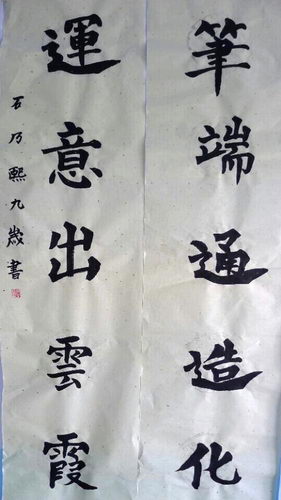 筆端通造化
運意出雲霞
石乃熙九歲書